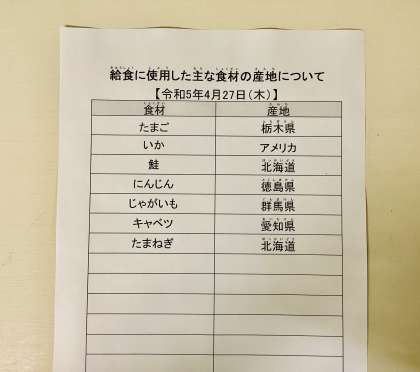 給食に使用した主な食材の産地について
【令和5年4月27日(木)】
食材 産地
たまご 栃木県
いか アメリカ
鮭 北海道
にんじん 徳島県
じゃがいも 群馬県
キャベツ 愛知県
たまねぎ 北海道